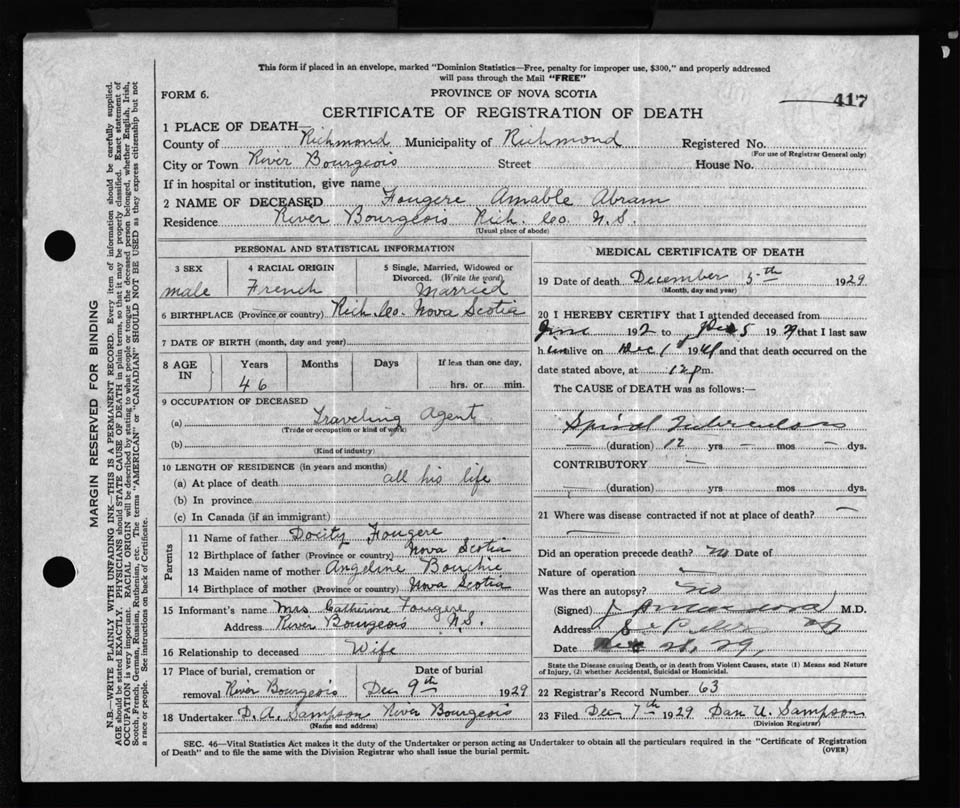 This form if placed in an envelope, marked "Dominion Statistics—Free, penalty for improper use, $300," and properly addressed
will pass through the Mail "FREE"
FORM 6.
PROVINCE OF NOVA SCOTIA
417
CERTIFICATE OF REGISTRATION OF DEATH
1 PLACE OF DEATH—
County of Richmond Municipality of Richmond Registered No.
(For use of Registrar General only)
City or Town River Bourgeois Street House No.
If in hospital or institution, give name
2 NAME OF DECEASED Fougere Amable Abram
Residence River Bourgeois Rich. Co. N.S.
(Usual place of abode)
PERSONAL AND STATISTICAL INFORMATION
3 SEX 4 RACIAL ORIGIN 5 Single, Married, Widowed or
Divorced. (Write the word)
male French Married
6 BIRTHPLACE (Province or country) Rich. Co. Nova Scotia
7 DATE OF BIRTH (month, day and year)
8 AGE IN Years Months Days If less than one day,
46 hrs. or min.
9 OCCUPATION OF DECEASED
(a) Traveling Agent
(Trade or occupation or kind of work)
(b)
(Kind of industry)
10 LENGTH OF RESIDENCE (in years and months)
(a) At place of death all his life
(b) In province
(c) In Canada (if an immigrant)
Parents
11 Name of father Docity Fougere
12 Birthplace of father (Province or country) Nova Scotia
13 Maiden name of mother Angeline Bouchie
14 Birthplace of mother (Province or country) Nova Scotia
15 Informant's name Mrs Catherine Fougere
Address River Bourgeois N.S.
16 Relationship to deceased Wife
17 Place of burial, cremation or Date of burial
removal River Bourgeois Dec 9th 1929
18 Undertaker D. A. Sampson River Bourgeois
(Name and address)
MEDICAL CERTIFICATE OF DEATH
19 Date of death December 5th 1929
(Month, day and year)
20 I HEREBY CERTIFY that I attended deceased from
192 to Dec 5 1929 that I last saw
h alive on Dec 1 19 and that death occurred on the
date stated above, at 12 p m.
The CAUSE of DEATH was as follows:—
Spinal Tuberculosis
(duration) 12 yrs — mos — dys.
CONTRIBUTORY —
— (duration) yrs mos dys.
21 Where was disease contracted if not at place of death? —
Did an operation precede death? no Date of
Nature of operation —
Was there an autopsy? no
(Signed) M.D.
Address St Peters
Date 29
State the Disease causing Death, or in death from Violent Causes, state (1) Means and Nature
of Injury, (2) whether Accidental, Suicidal or Homicidal.
22 Registrar's Record Number 63
23 Filed Dec 7th 1929 Dan U. Sampson
(Division Registrar)
SEC. 46—Vital Statistics Act makes it the duty of the Undertaker or person acting as Undertaker to obtain all the particulars required in the "Certificate of Registration
of Death" and to file the same with the Division Registrar who shall issue the burial permit.
(OVER)
MARGIN RESERVED FOR BINDING
N.B.—WRITE PLAINLY WITH UNFADING INK—THIS IS A PERMANENT RECORD. Every item of information should be carefully supplied.
AGE should be stated EXACTLY. PHYSICIANS should STATE CAUSE OF DEATH in plain terms, so that it may be properly classified. Exact statement of
OCCUPATION is very important. RACIAL ORIGIN will be described by stating to what people or tongue the deceased person belonged, whether English, Irish,
Scotch, French, German, Russian, Ruthenian, etc. The terms "AMERICAN" or "CANADIAN" SHOULD NOT BE USED as they express citizenship but not
a race or people. See instructions on back of Certificate.